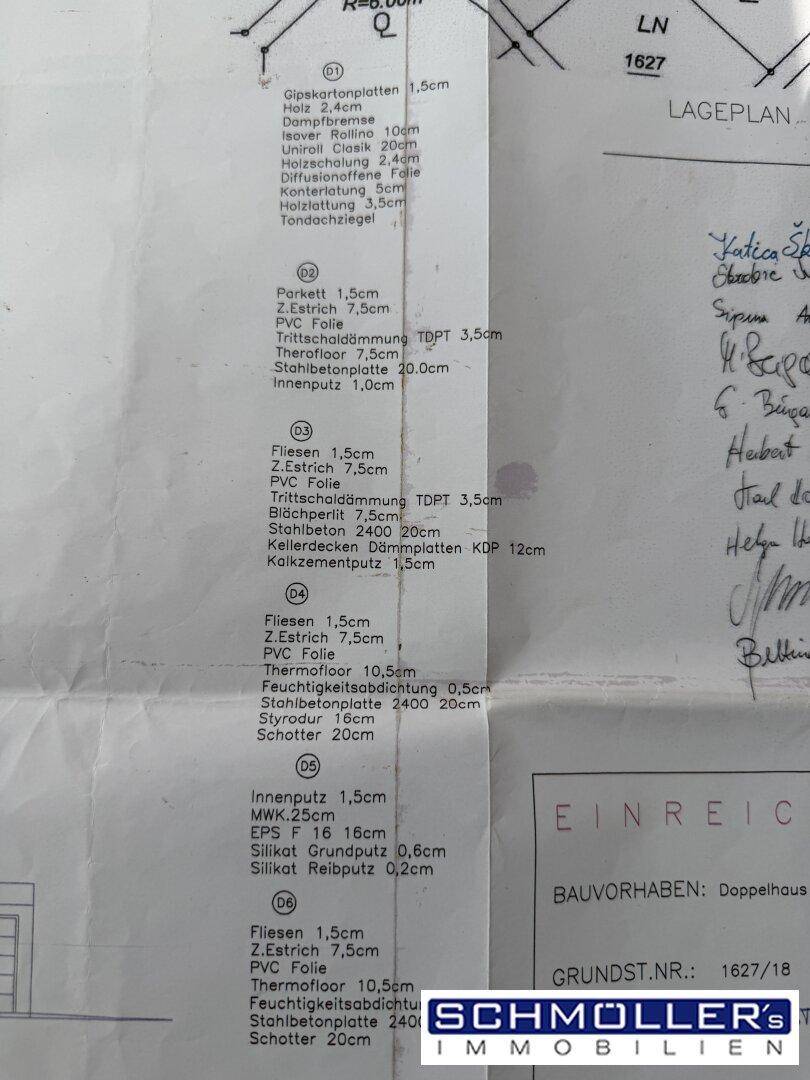 R=6.00m
LN
1627
LAGEPLAN
D1
Gipskartonplatten 1,5cm
Holz 2,4cm
Dampfbremse
Isover Rollino 10cm
Uniroll Clasik 20cm
Holzschalung 2,4cm
Diffusionoffene Folie
Konterlatung 5cm
Holzlattung 3,5cm
Tondachziegel
D2
Parkett 1,5cm
Z.Estrich 7,5cm
PVC Folie
Trittschaldämmung TDPT 3,5cm
Therofloor 7,5cm
Stahlbetonplatte 20.0cm
Innenputz 1,0cm
D3
Fliesen 1,5cm
Z.Estrich 7,5cm
PVC Folie
Trittschaldämmung TDPT 3,5cm
Blächperlit 7,5cm
Stahlbeton 2400 20cm
Kellerdecken Dämmplatten KDP 12cm
Kalkzementputz 1,5cm
D4
Fliesen 1,5cm
Z.Estrich 7,5cm
PVC Folie
Thermofloor 10,5cm
Feuchtigkeitsabdichtung 0,5cm
Stahlbetonplatte 2400 20cm
Styrodur 16cm
Schotter 20cm
D5
Innenputz 1,5cm
MWK.25cm
EPS F 16 16cm
Silikat Grundputz 0,6cm
Silikat Reibputz 0,2cm
D6
Fliesen 1,5cm
Z.Estrich 7,5cm
PVC Folie
Thermofloor 10,5cm
Feuchtigkeitsabdichtu
Stahlbetonplatte 240
Schotter 20cm
Katica
Herbert
Helga
EINREIC
BAUVORHABEN: Doppelhaus
GRUNDST.NR.: 1627/18
SCHMÖLLER's
IMMOBILIEN